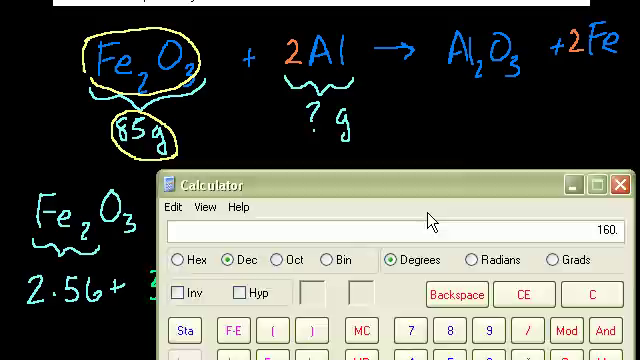 Fe2O3 + 2Al → Al2O3 + 2Fe
85g ? g
Fe2O3
2.56+
Calculator
Edit View Help
160.
Hex Dec Oct Bin Degrees Radians Grads
Inv Hyp Backspace CE C
Sta F-E ( ) MC 7 8 9 / Mod And